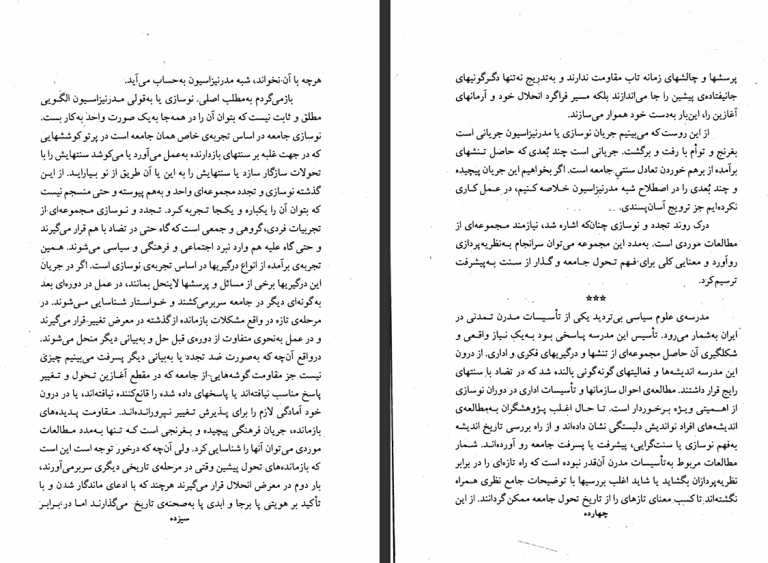 هرچه با آن نخواند، شبه مدرنیزاسیون به‌حساب می‌آید.
بازمی‌گردم به‌مطلب اصلی. نوسازی یا به‌قولی مدرنیزاسیون الگویی
مطلق و ثابت نیست که بتوان آن را در همه‌جا به‌یک صورت واحد به‌کار بست.
نوسازی جامعه در اساس تجربه‌ی خاص همان جامعه است در پرتو کوششهایی
که در جهت غلبه بر سنتهای بازدارنده به‌عمل می‌آورد یا می‌کوشد سنتهایش را با
تحولات سازگار سازد یا سنتهایش را به این یا آن طریق از نو بیاراید. از این
گذشته نوسازی و تجدد مجموعه‌ای واحد و به‌هم پیوسته و حتی منسجم نیست
که بتوان آن را یکباره و یکجا تجربه کرد. تجدد و نوسازی مجموعه‌ای از
تجربیات فردی، گروهی و جمعی است که گاه حتی در تضاد با هم قرار می‌گیرند
و حتی گاه علیه هم وارد نبرد اجتماعی و فرهنگی و سیاسی می‌شوند. همین
تجربه‌ی برآمده از انواع درگیریها در اساس تجربه‌ی نوسازی است. اگر در جریان
این درگیریها برخی از مسائل و پرسشها لاینحل بمانند، در عمل در دوره‌ای بعد
به‌گونه‌ای دیگر در جامعه سربرمی‌کشند و خواستار شناسایی می‌شوند. در
مرحله‌ی تازه در واقع مشکلات بازمانده از گذشته در معرض تغییر قرار می‌گیرند
و در عمل به‌نحوی متفاوت از دوره‌ی قبل حل و به‌بیانی دیگر منحل می‌شوند.
درواقع آن‌چه که به‌صورت ضد تجدد یا به‌بیانی دیگر پسرفت می‌بینیم چیزی
نیست جز مقاومت گوشه‌هایی از جامعه که در مقطع آغازین تحول و تغییر
پاسخ مناسب نیافته‌اند یا پاسخهای داده شده را قانع‌کننده نیافته‌اند، یا در درون
خود آمادگی لازم را برای پذیرش تغییر نپرورانده‌اند. مقاومت پدیده‌های
بازمانده، جریان فرهنگی پیچیده و بغرنجی است که تنها به‌مدد مطالعات
موردی می‌توان آنها را شناسایی کرد. ولی آن‌چه که درخور توجه است این است
که بازمانده‌های تحول پیشین وقتی در مرحله‌ی تاریخی دیگری سربرمی‌آورند،
بار دوم در معرض انحلال قرار می‌گیرند هرچند که با ادعای ماندگار شدن و با
تأکید بر هویتی پا برجا و ابدی پا به‌صحنه‌ی تاریخ می‌گذارند اما در برابر
سیزده
پرسشها و چالشهای زمانه تاب مقاومت ندارند و به‌تدریج نه‌تنها دگرگونیهای
جانیفتاده‌ی پیشین را جا می‌اندازند بلکه مسیر فراگرد انحلال خود و آرمانهای
آغازین را، این‌بار به‌دست خود هموار می‌سازند.
از این روست که می‌بینیم جریان نوسازی یا مدرنیزاسیون جریانی است
بغرنج و توأم با رفت و برگشت. جریانی است چند بُعدی که حاصل تنشهای
برآمده از برهم خوردن تعادل سنتی جامعه است. اگر بخواهیم این جریان پیچیده
و چند بُعدی را در اصطلاح شبه مدرنیزاسیون خلاصه کنیم، در عمل کاری
نکرده‌ایم جز ترویج آسان‌پسندی.
درک روند تجدد و نوسازی چنان‌که اشاره شد، نیازمند مجموعه‌ای از
مطالعات موردی است. به‌مدد این مجموعه می‌توان سرانجام به‌نظریه‌پردازی
روآورد و معنایی کلی برای فهم تحول جامعه و گذار از سنت به‌پیشرفت
ترسیم کرد.
***
مدرسه‌ی علوم سیاسی بی‌تردید یکی از تأسیسات مدرن تمدنی در
ایران به‌شمار می‌رود. تأسیس این مدرسه پاسخی بود به‌یک نیاز واقعی و
شکلگیری آن حاصل مجموعه‌ای از تنشها و درگیریهای فکری و اداری. از درون
این مدرسه اندیشه‌ها و فعالیتهای گونه‌گونی بالنده شد که در تضاد با سنتهای
رایج قرار داشتند. مطالعه‌ی احوال سازمانها و تأسیسات اداری در دوران نوسازی
از اهمیتی ویژه برخوردار است. تا حال اغلب پژوهشگران به‌مطالعه‌ی
اندیشه‌های افراد نواندیش دلبستگی نشان داده‌اند و از راه بررسی تاریخ اندیشه
به‌فهم نوسازی یا سنت‌گرایی، پیشرفت یا پسرفت جامعه رو آورده‌اند. شمار
مطالعات مربوط به‌تأسیسات مدرن آن‌قدر نبوده است که راه تازه‌ای را در برابر
نظریه‌پردازان بگشاید یا شاید اغلب بررسیها با توضیحات جامع نظری همراه
نگشته‌اند تا کسب معنای تازه‌ای را از تاریخ تحول جامعه ممکن گردانند. از این
چهارده